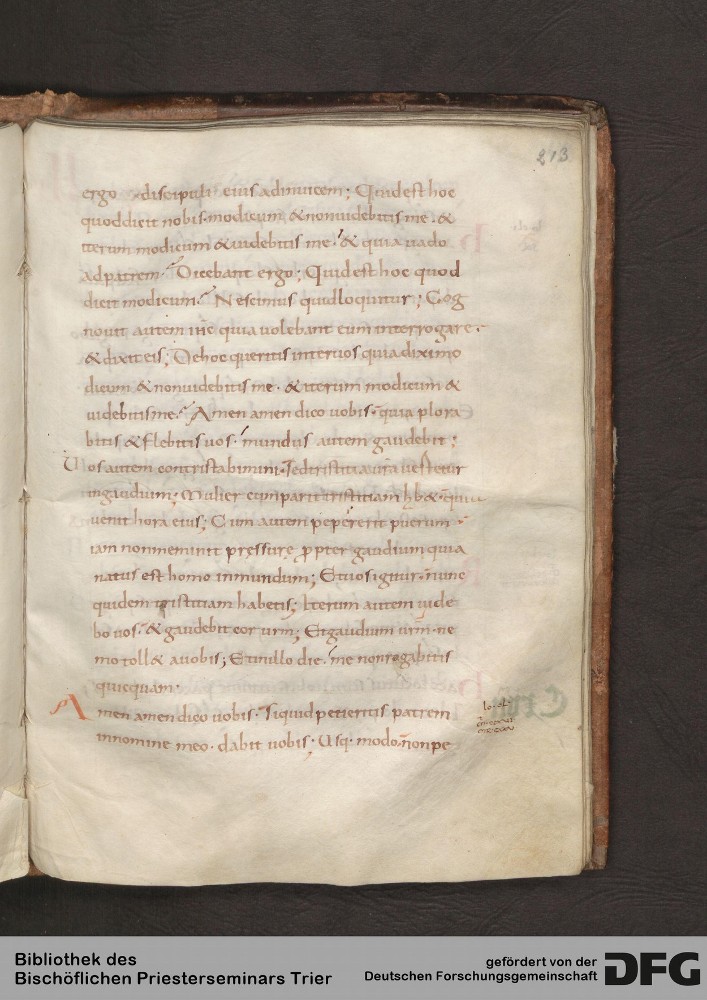 213
ergo discipuli eius adinuicem; Quid est hoc
quod dicit nobis. modicum & nonuidebitis me. &
iterum modicum & uidebitis me. & quia uado
ad patrem. Dicebant ergo; Quid est hoc quod
dicit modicum. Nescimus quid loquitur; Cog
nouit autem ihs quia uolebant eum interrogare.
& dixit eis; De hoc queritis inter uos quia dixi mo
dicum & nonuidebitis me. & iterum modicum &
uidebitis me. Amen amen dico uobis. quia plora
bitis & flebitis uos. mundus autem gaudebit;
Uos autem contristabimini. sed tristitia ura uertetur
ingaudium; Mulier cum parit tristitiam hab&. quia
uenit hora eius; Cum autem pepererit puerum
iam nonmeminit pressurę propter gaudium quia
natus est homo inmundum; Et uos igitur. nunc
quidem tristitiam habetis; Iterum autem uide
bo uos. & gaudebit cor urm; Et gaudium urm. ne
mo toll& auobis; Et inillo die. me nonrogabitis
quicquam.
Amen amen dico uobis. siquid petieritis patrem
innomine meo. dabit uobis. Usq. modo. non pe
Bibliothek des
Bischöflichen Priesterseminars Trier
gefördert von der
Deutschen Forschungsgemeinschaft
DFG